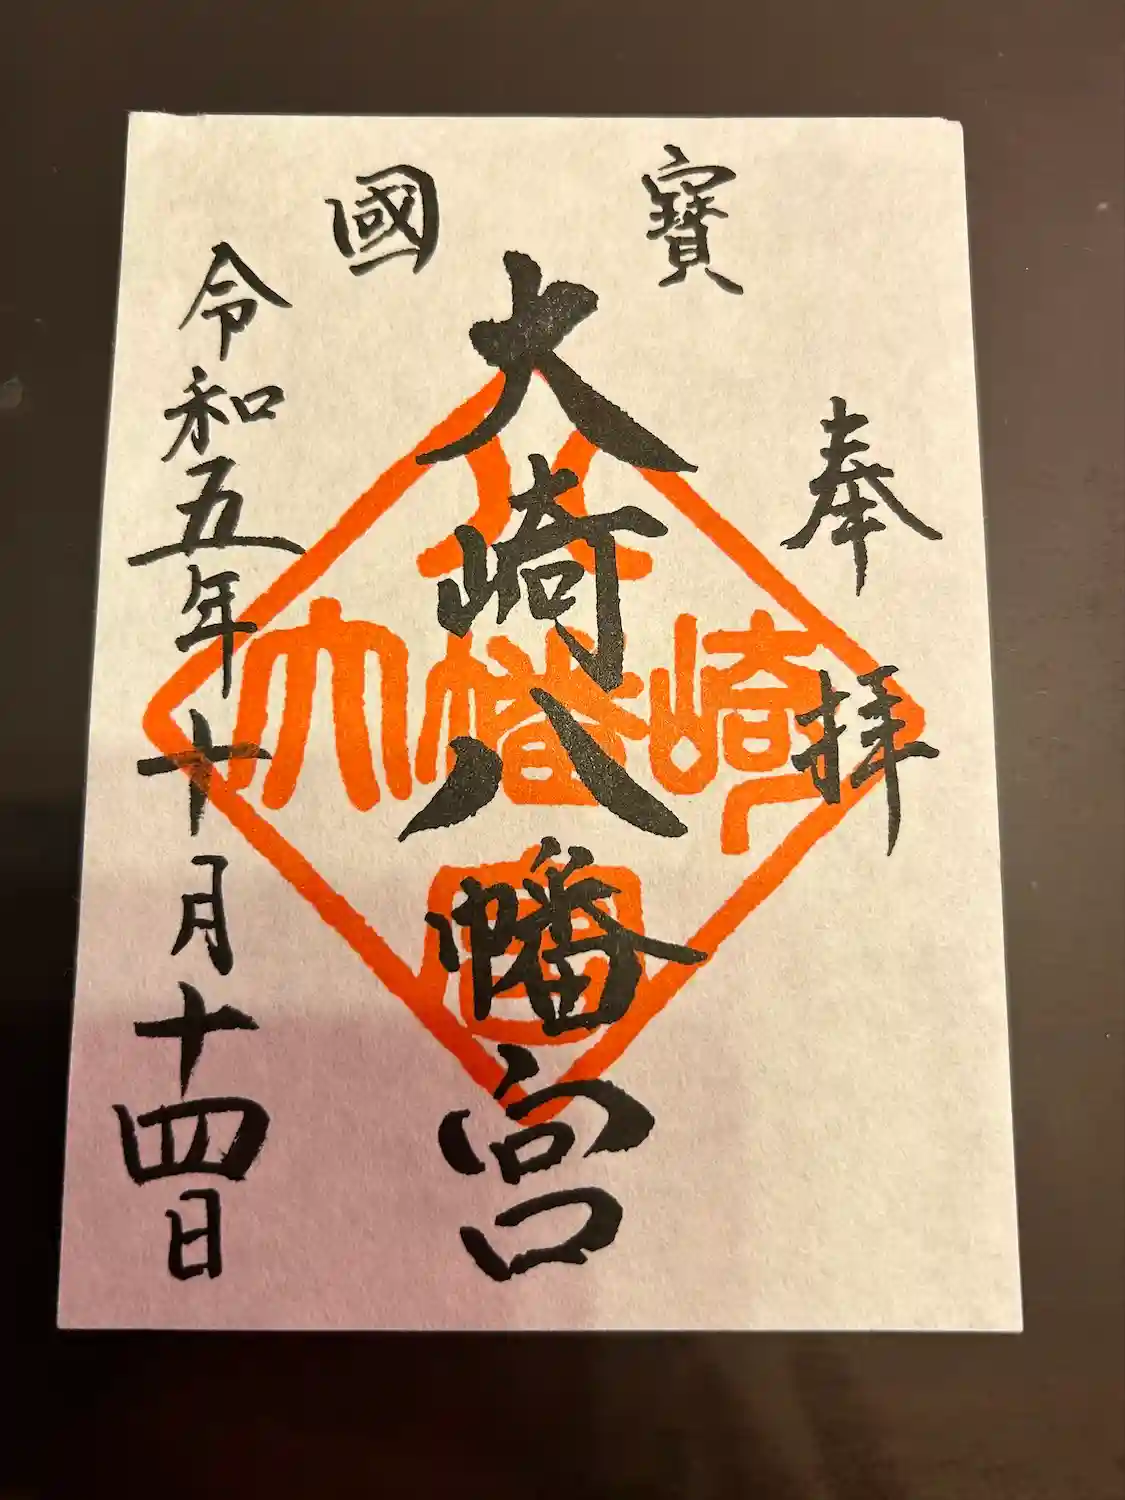 奉拝
寶
大崎八幡宮
國
令和五年十月十四日
八
大幡崎
宮